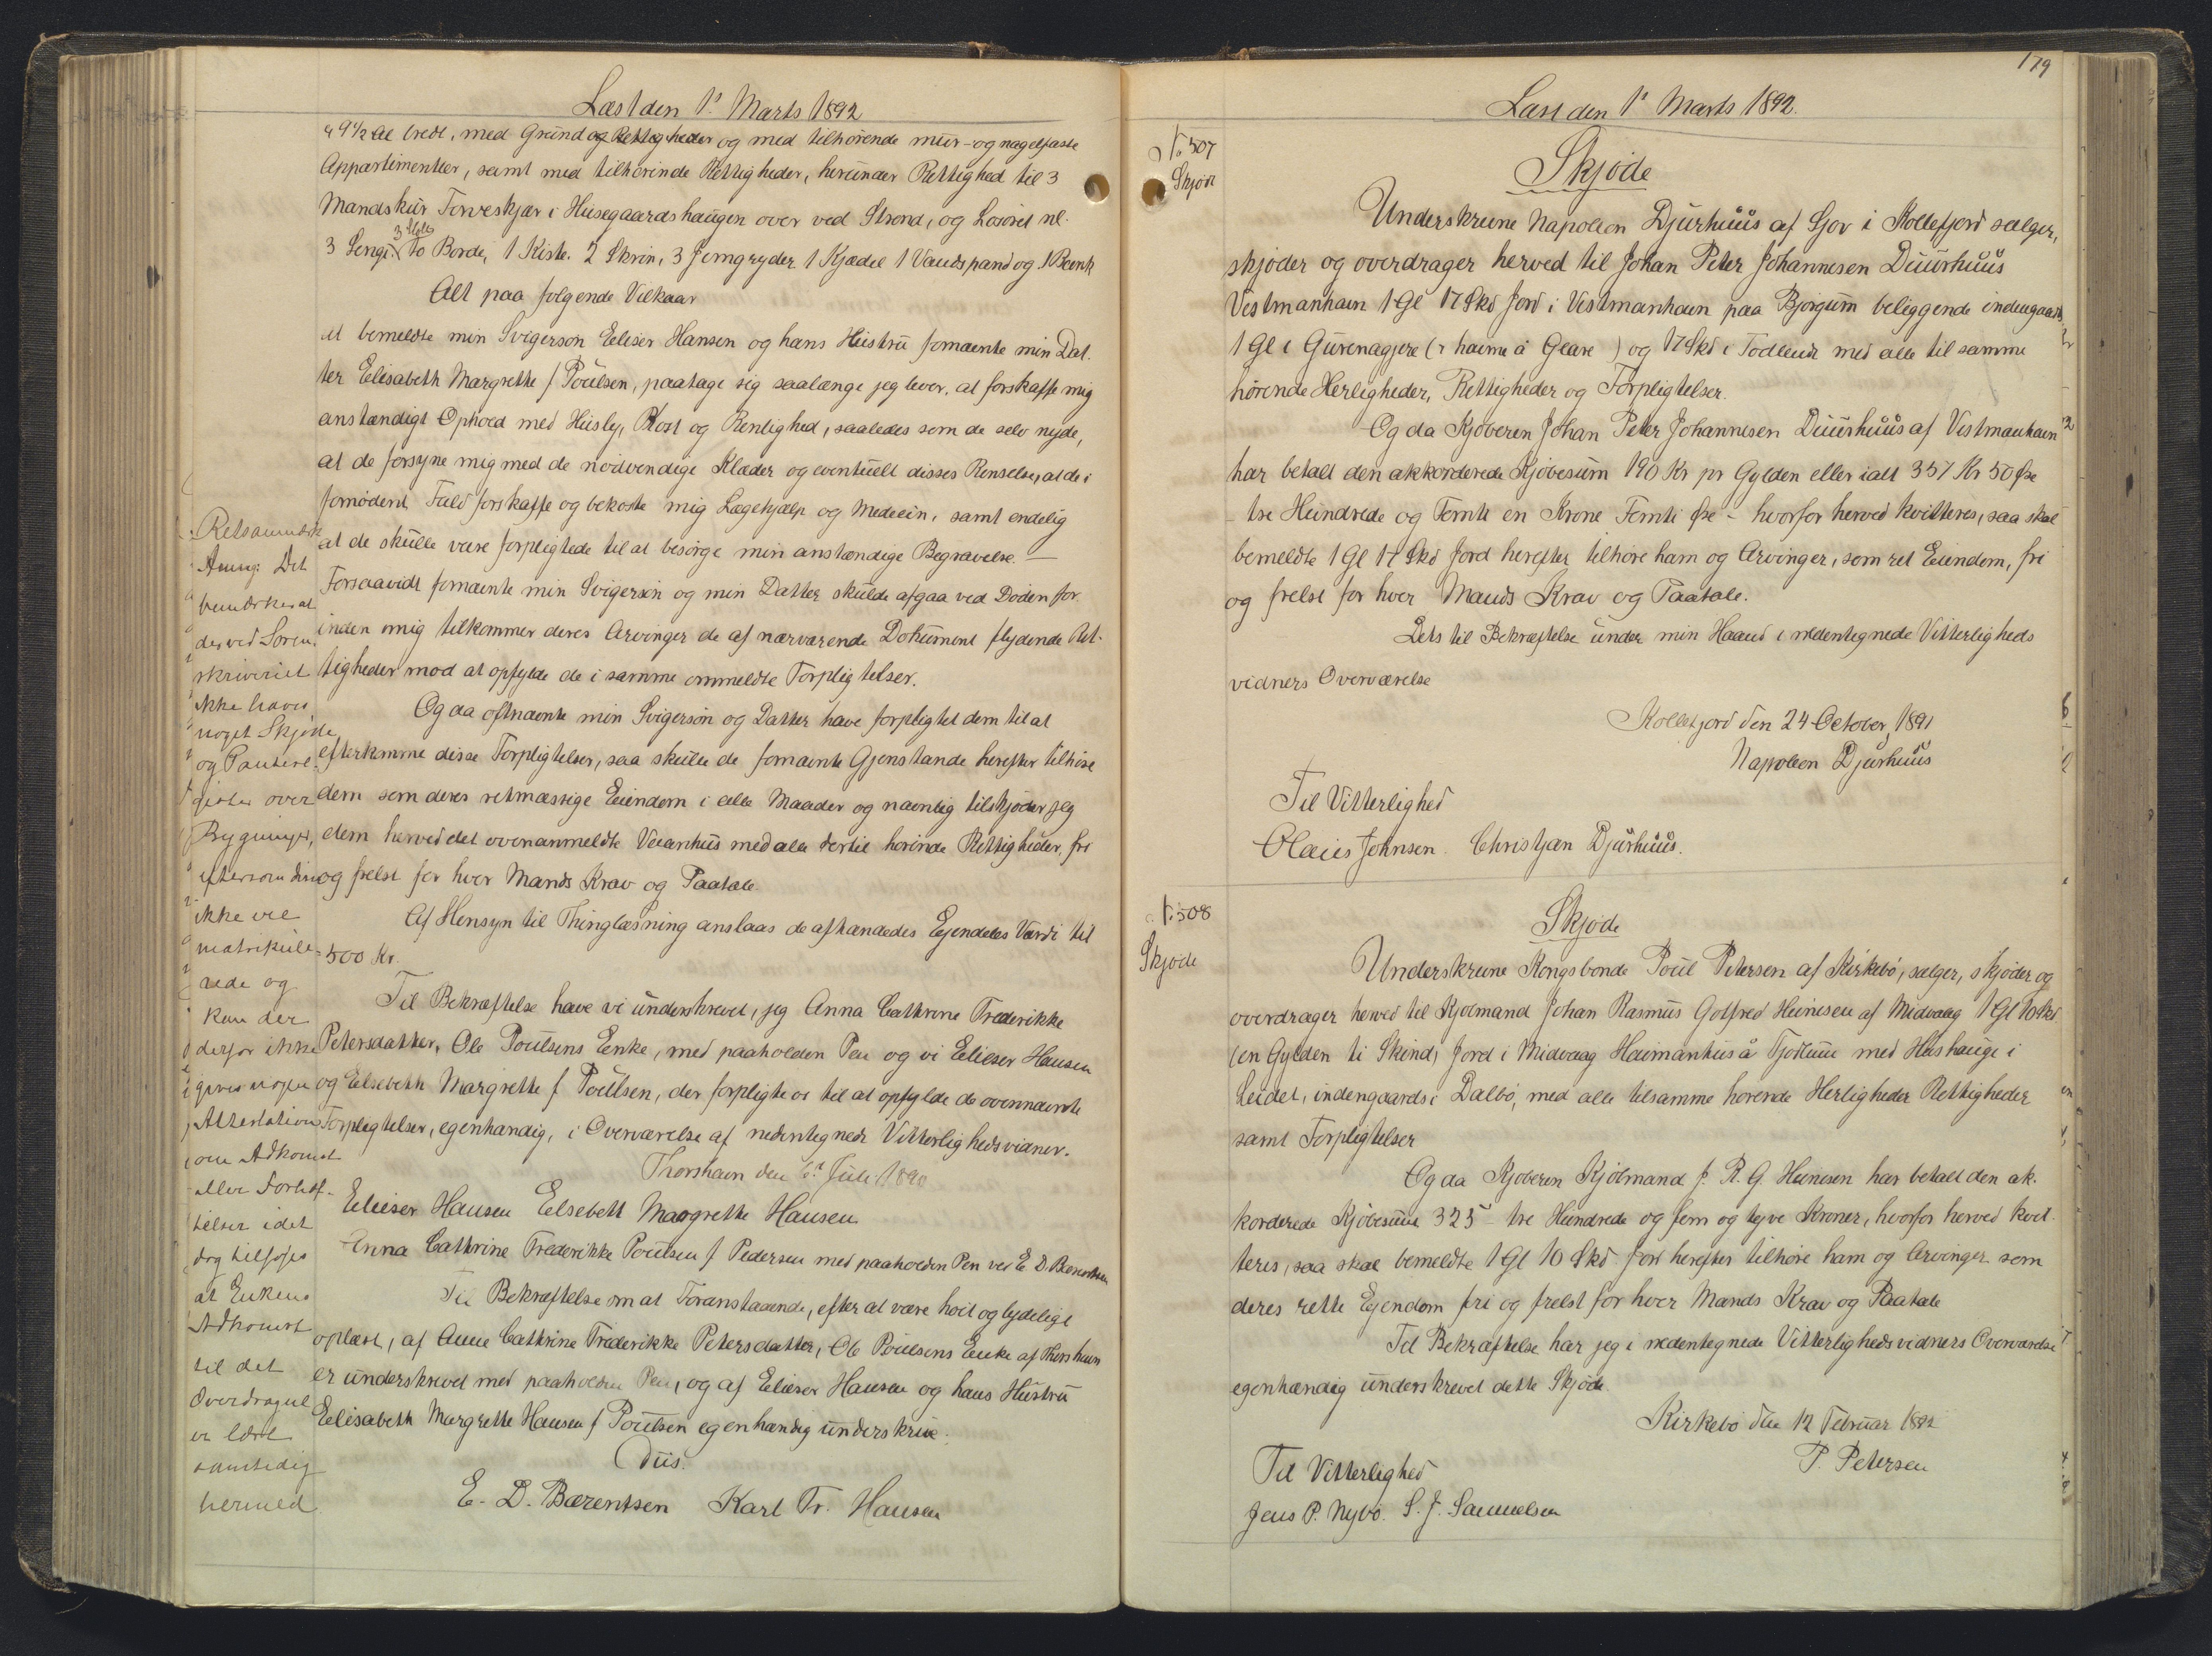 Læst den 1' Marts 1892
" 9 1/2 Al bredt, med Grund og Rettigheder og med tilhørende mur- og nagelfaste
Appartimentler, samt med tilhørende Rettigheder, herunder Rettighed til 3
Mandskur Törveskjær i Husegaardshaugen over ved Strond, og Løsöret nl.
3 Stole
3 Senge. To Borde, 1 Kiste. 2 Skrin, 3 Jerngryder 1 Kjædel 1 Vandspand og 1 Bænk
Alt paa følgende Vilkaar
at bemeldte min Svigersøn Elieser Hansen og hans Hustru fornævnte min Dat-
ter Elisabeth Margrethe f Poulsen, paatage sig saalænge jeg lever, at forskaffe mig
anstændigt Ophold med Husly, Kost og Renlighed, saaledes som de selv nyde,
at de forsyne mig med de nødvendige Klæder og eventuelt disses Renselse, at de i
fornødent Fald forskaffe og bekoste mig Lægehjælp og Medecin, samt endelig
at de skulle være forpligtede til at besørge min anstændige Begravelse. —
Forsaavidt fornævnte min Svigersøn og min Datter skulde afgaa ved Døden for-
inden mig tilkommer deres Arvinger de af nærværende Dokument flydende Ret-
tigheder mod at opfylde de i samme ommeldte Forpligtelser.
Og da oftnævnte min Svigersøn og Datter have forpligtet dem til at
efterkomme disse Forpligtelser, saa skulle de fornævnte Gjenstande herefter tilhøre
dem som deres retmæssige Eiendom i alle Maader og navnlig tilskjøder jeg
dem herved det ovenanmeldte Vaanhus med alle dertil hørende Rettigheder, fri
og frelst for hver Mands Krav og Paatale.
Af Hensyn til Thinglæsning anslaas de afhændedes Ejendeles Værdi til
500 Kr.
Til Bekræftelse have vi underskrevet, jeg Anna Cathrine Frederikke
Petersdatter, Ole Poulsens Enke, med paaholden Pen og vi Elieser Hansen
og Elsebeth Margrethe f Poulsen, der forpligte os til at opfylde de ovennævnte
Forpligtelser, egenhændig, i Overværelse af nedentegnede Vitterlighedsvidner.
Thorshavn den 6' Juli 1890
Elieser Hansen Elsebett Margrethe Hansen
Anna Cathrine Frederikke Poulsen f Pedersen med paaholden Pen ved E D Bærentsen
Til Bekræftelse om at Foranstaaende, efter at være høit og lydeligt
oplæst, af Anne Cathrine Frederikke Petersdatter, Ole Poulsens Enke af Thorshavn
er underskrevet med paaholden Pen, og af Elieser Hansen og hans Hustru
Elisabeth Margrethe Hansen f Poulsen egenhændig underskrive.
Duis.
E. D. Bærentsen Karl Fr. Hansen
Retsanmærk
Anmg: Det
bemærkes at
der ved Soren-
skriveriet
ikke haves
noget Skjøde
og Pantere-
gister over
Bygninger,
eftersom disse
ikke ere
matrikule-
rede og
kan der
derfor ikke
gives nogen
Attestation
om Adkomst
eller Forhæf-
telser idet
dog tilføjes
at Enkens
Adkomst
til det
Overdragne
er læst
samtidig
hermed.
179
Læst den 1' Marts 1892.
No 507
Skjøde
Skjøde
Underskrevne Napoleon Djurhuus af Sjov i Kollefjord sælger,
skjøder og overdrager herved til Johan Peter Johannesen Duurhuus
Vestmanhavn 1 Gl 17 Skd Jord i Vestmanhavn paa Bjorgum beliggende indengaards
1 Gl i Gurenagjere (r haime å Geare) og 17 Skd i Todlend med alle til samme
hørende Herligheder, Rettigheder og Forpligtelser.
Og da Kjøberen Johan Peter Johannesen Duurhuus af Vestmanhavn
har betalt den akkorderede Kjøbesum 190 Kr pr Gylden eller ialt 351 Kr 50 Øre
- tre Hundrede og Femti en Krone Femti Øre - hvorfor herved kvitteres, saa skal
bemeldte 1 Gl 17 Skd Jord herefter tilhøre ham og Arvinger, som ret Eiendom, fri
og frelst for hver Mands Krav og Paatale.
Dets til Bekræftelse under min Haand i nedentegnede Vitterligheds
vidners Overværelse
Kollefjord den 24 October 1891
Napoleon Djurhuus
Til Vitterlighed
Olaus Johnsen. Christjan Djurhuus.
No 508
Skjøde
Skjøde
Underskrevne Kongsbonde Poul Petersen af Kirkebø, sælger, skjøder og
overdrager herved til Kjøbmand Johan Rasmus Gotfred Heinesen af Midvaag 1 Gl 10 Skd
(en Gylden ti Skind) Jord i Midvaag Heimanhus å Tjodlum med Hushauge i
Leidet, indengaards i Dalbø, med alle tilsamme hørende Herligheder Rettigheder
samt Forpligtelser
Og da Kjøberen Kjøbmand J. R. G. Heinesen har betalt den ak-
korderede Kjøbesum 325 - tre Hundrede og fem og tyve Kroner, hvorfor herved kvit-
teres, saa skal bemeldte 1 Gl 10 Skd Jord herefter tilhøre ham og Arvinger som
deres rette Ejendom fri og frelst for hver Mands Krav og Paatale
Til Bekræftelse har jeg i nedentegnede Vitterlighedsvidners Overværelse
egenhændig underskrevet dette Skjøde.
Kirkebø den 12 Februar 1892
P. Petersen
Til Vitterlighed
Jens P. Nybo. S. J. Samuelsen